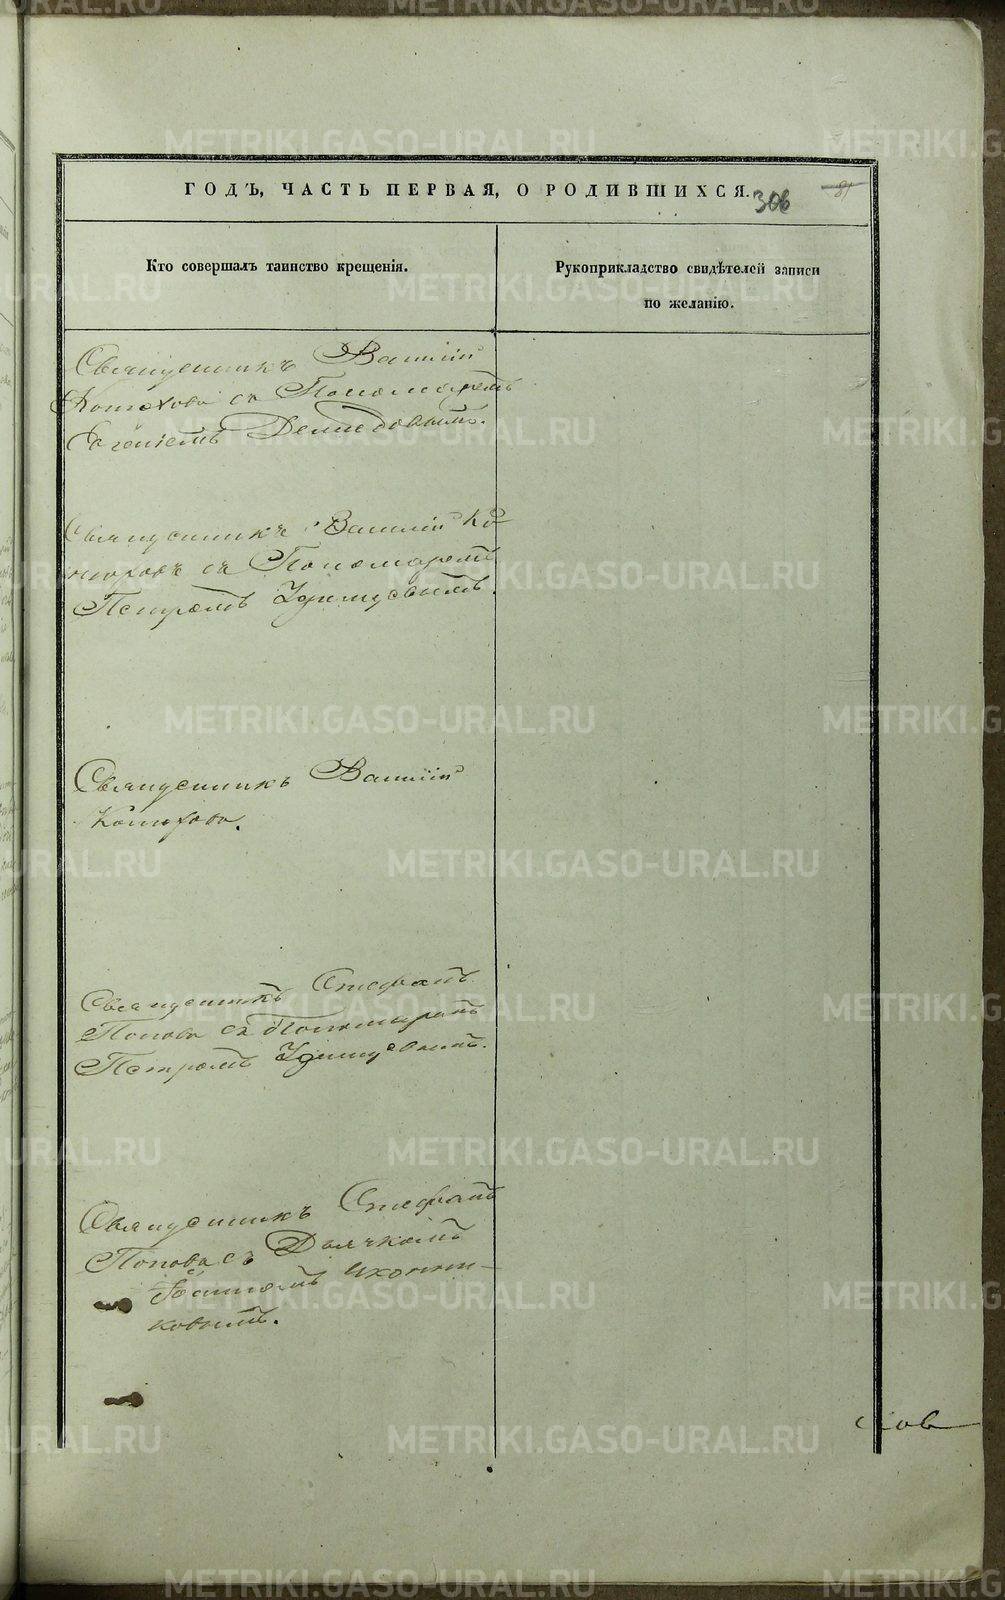 ГОДЪ, ЧАСТЬ ПЕРВАЯ, О РОДИВШИХСЯ.
306
81
Кто совершалъ таинство крещенія.
Рукоприкладство свидѣтелей записи
по желанію.
Священникъ Василій
съ Пономаремъ
Евгеніемъ Демидовымъ.
Священникъ Василій
съ Пономаремъ
Петромъ
Священникъ Василій
Священникъ Стефанъ
Поповъ съ Пономаремъ
Петромъ
Священникъ Стефанъ
Поповъ съ Дьячкомъ
Іоанномъ Иконни-
ковымъ.
METRIKI.GASO-URAL.RU